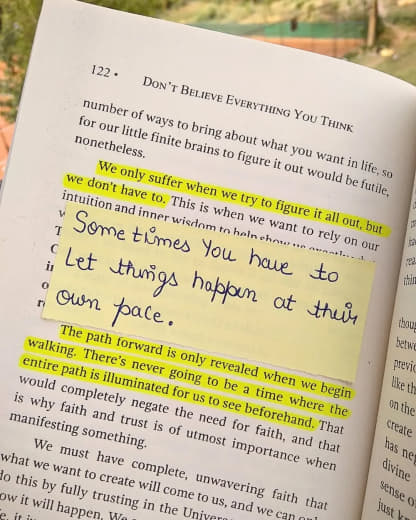 122 • DON'T BELIEVE EVERYTHING YOU THINK
number of ways to bring about what you want in life, so
for our little finite brains to figure it out would be futile,
nonetheless.
We only suffer when we try to figure it all out, but
we don't have to. This is when we want to rely on our
intuition and inner wisdom to help show us
Sometimes You have to
Let things happen at their
own pace.
The path forward is only revealed when we begin
walking. There's never going to be a time where the
entire path is illuminated for us to see beforehand. That
would completely negate the need for faith, and that
is why faith and trust is of utmost importance when
manifesting something.
We must have complete, unwavering faith that
what we want to create will come to us, and we can
do this by fully trusting in the
ow it will happen. We
thou
betwe
previo
like th
on the
create
has neg
divine
sense o
just k